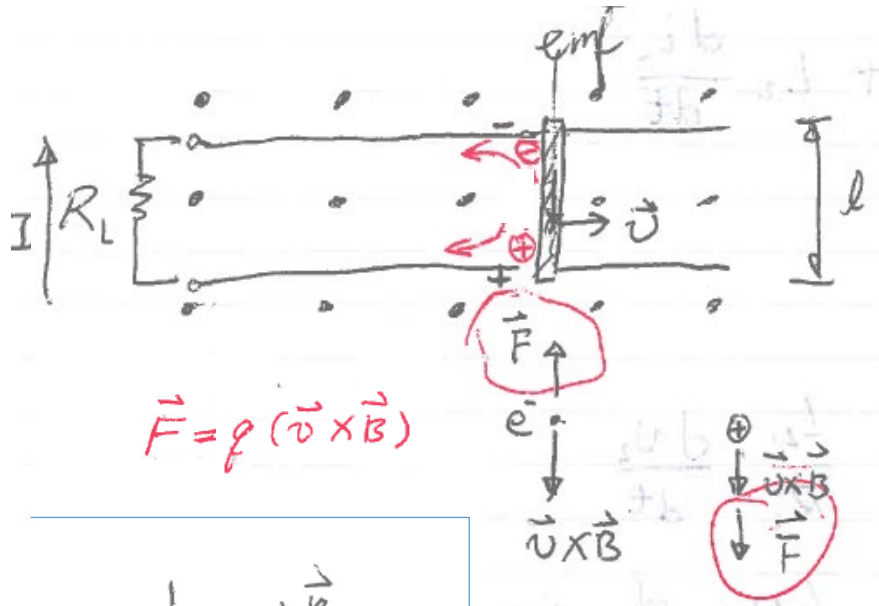 emf
−
⊖
I
R_L
l
\vec{v}
⊕
+
\vec{F}
\vec{F} = q (\vec{v} × \vec{B})
e^-
⊕
\vec{v} × \vec{B}
\vec{v} × \vec{B}
\vec{F}